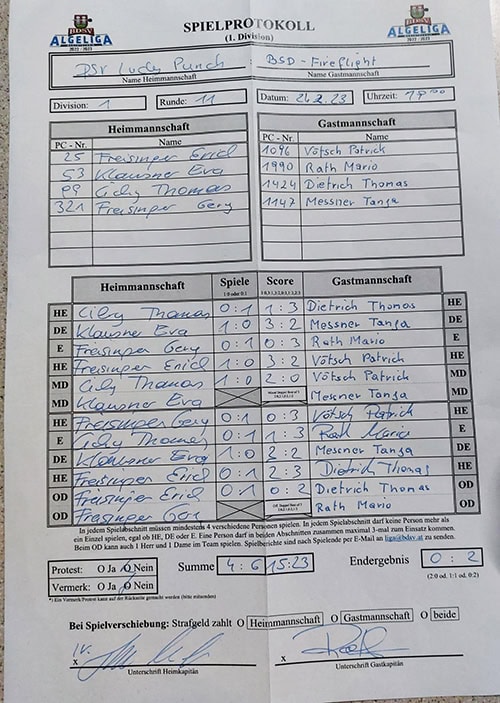 BDSV
ALGELIGA
2022 / 2023
SPIELPROTOKOLL
(1. Division)
BDSV
ALGELIGA
2022 / 2023
DSV Lucky Punch
BSD - Fireflight
Name Heimmannschaft
Name Gastmannschaft
Division: 1
Runde: 11
Datum: 23
Uhrzeit:
Heimmannschaft
Gastmannschaft
PC - Nr. Name
PC - Nr. Name
25 Freisinger Erich
1096 Vötsch Patrick
53 Klausner Eva
1990 Rath Mario
99 Thomas
1424 Dietrich Thomas
321 Freisinger Gery
1147 Messner Tanja
Heimmannschaft Spiele Score Gastmannschaft
1:0 oder 0:1
HE Thomas 0:1 1:3 Dietrich Thomas HE
DE Klausner Eva 1:0 3:2 Messner Tanja DE
E Freisinger Gery 0:1 0:3 Rath Mario E
HE Freisinger Erich 1:0 3:2 Vötsch Patrick HE
MD Thomas 1:0 2:0 Vötsch Patrick MD
MD Klausner Eva Messner Tanja MD
HE Freisinger Gery 0:1 0:3 Vötsch Patrick HE
E Thomas 0:1 1:3 Rath Mario E
DE Klausner Eva 1:0 :2 Messner Tanja DE
HE Freisinger Erich 0:1 2:3 Dietrich Thomas HE
OD Freisinger Erich 0:1 0:2 Dietrich Thomas OD
OD Freisinger Rath Mario OD
In jedem Spielabschnitt müssen mindestens 4 verschiedene Personen spielen. In jedem Spielabschnitt darf keine Person mehr als
ein Einzel spielen, egal ob HE, DE oder E. Eine Person darf in beiden Abschnitten zusammen maximal 3-mal zum Einsatz kommen.
Beim OD kann auch 1 Herr und 1 Dame im Team spielen. Spielberichte sind nach Spielende per E-Mail an liga@bdsv.at zu senden.
Protest: O Ja O Nein
Summe 4:6 15:23
Endergebnis 0:2
Vermerk: O Ja O Nein
(2:0 od. 1:1 od. 0:2)
*) Ein Vermerk/Protest kann auf der Rückseite gemacht werden (bitte mitsenden)
Bei Spielverschiebung: Strafgeld zahlt O Heimmannschaft O Gastmannschaft O beide
x
x
Unterschrift Heimkapitän
Unterschrift Gastkapitän